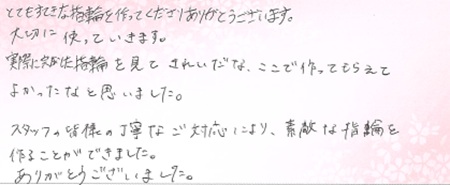 とてもすてきな指輪を作ってくださりありがとうございます。
大切に使っていきます。
実際に完成した指輪を見てきれいだな、ここで作ってもらえて
よかったなと思いました。
スタッフの皆様の丁寧なご対応により、素敵な指輪を
作ることができました。
ありがとうございました。